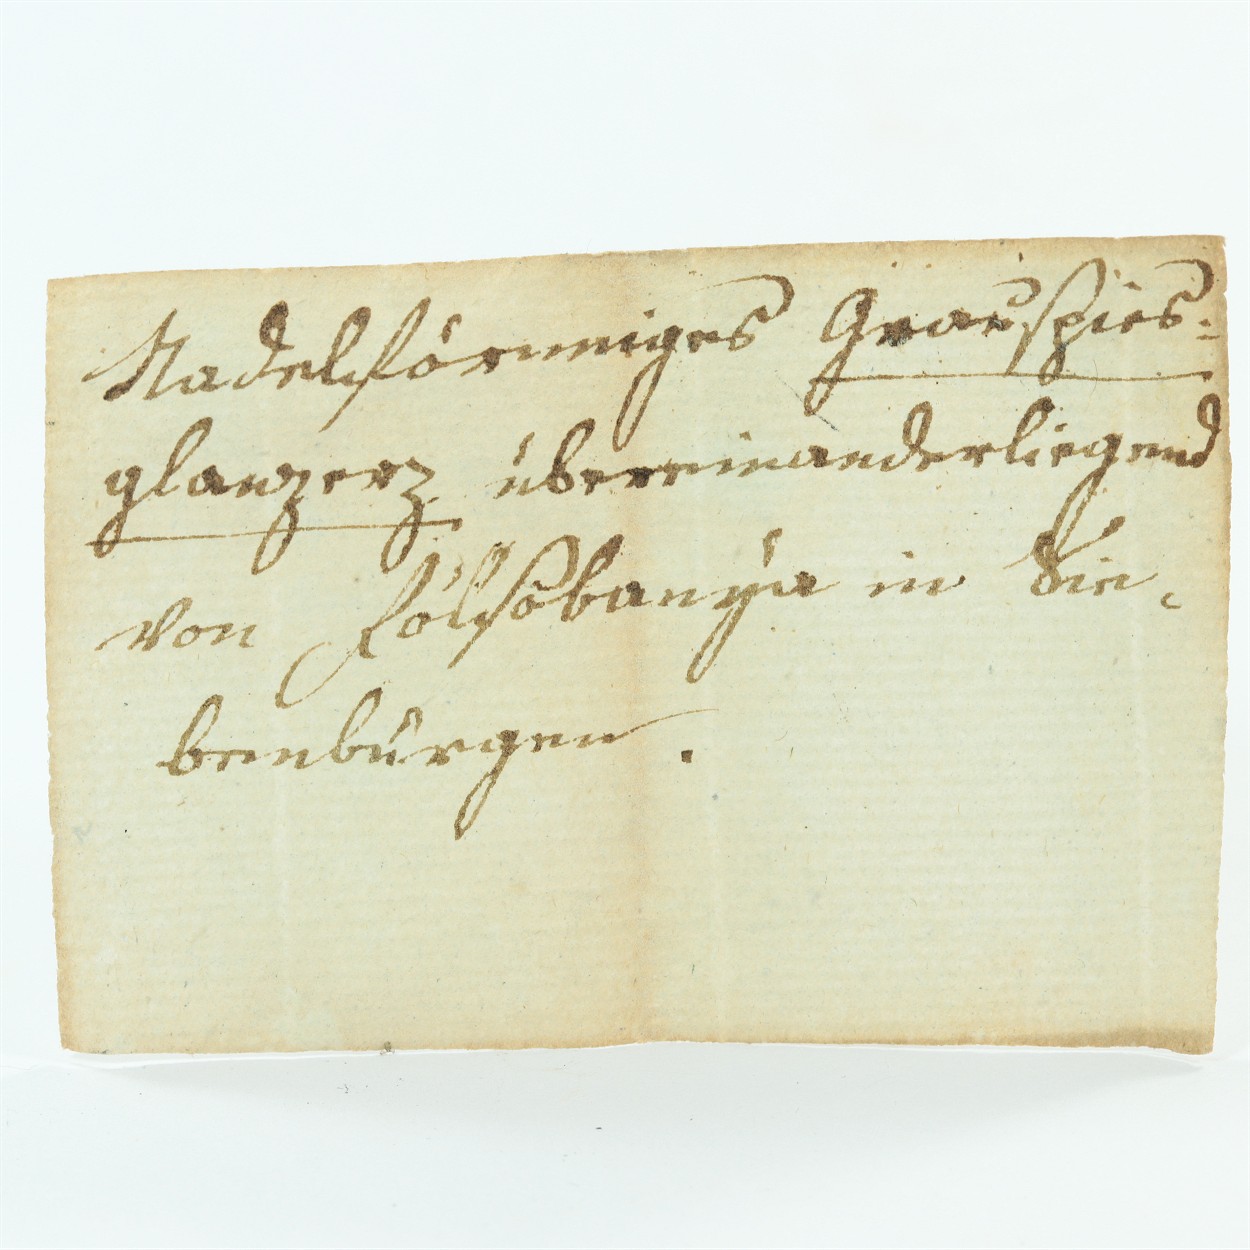 Nadelförmiges Grauspies-
glanzerz übereinanderliegend
von Fölsöbanÿa in Sie-
benbürgen.